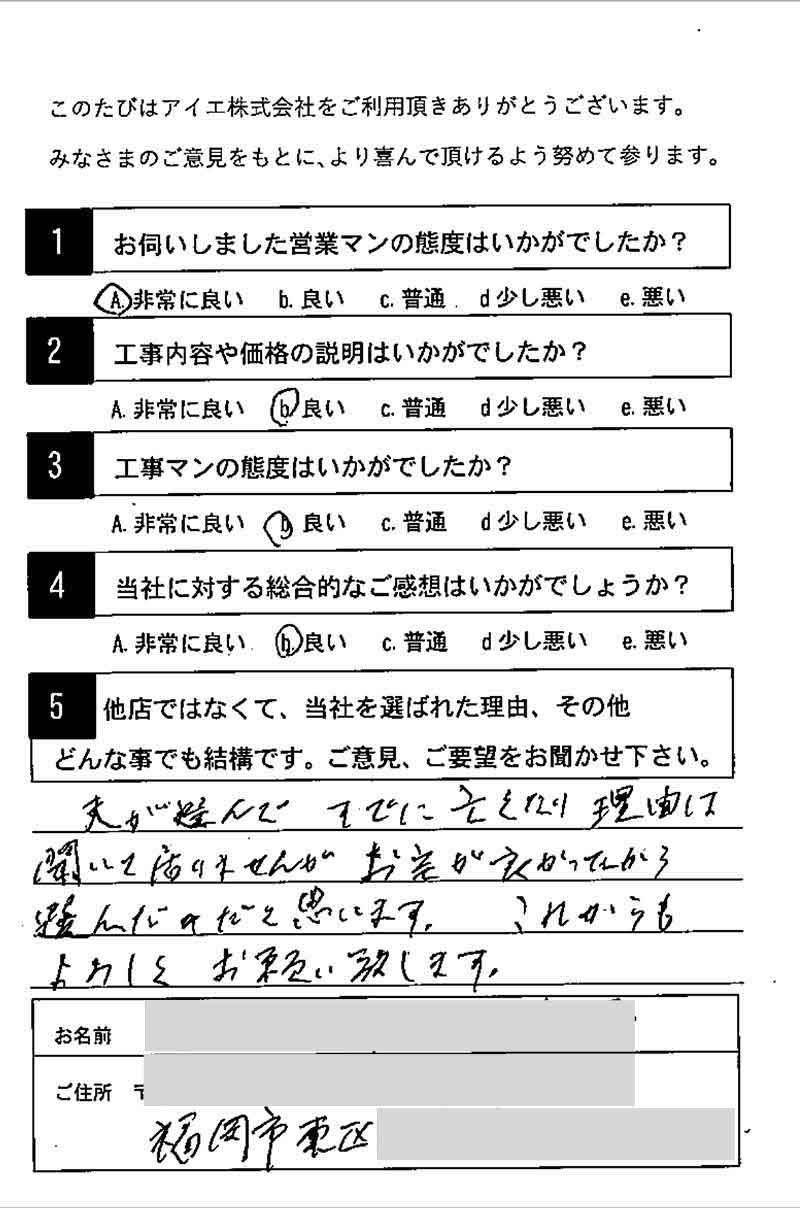 このたびはアイエ株式会社をご利用頂きありがとうございます。
みなさまのご意見をもとに、より喜んで頂けるよう努めて参ります。
1 お伺いしました営業マンの態度はいかがでしたか？
A. 非常に良い b. 良い c. 普通 d 少し悪い e. 悪い
2 工事内容や価格の説明はいかがでしたか？
A. 非常に良い b 良い c. 普通 d 少し悪い e. 悪い
3 工事マンの態度はいかがでしたか？
A. 非常に良い b 良い c. 普通 d 少し悪い e. 悪い
4 当社に対する総合的なご感想はいかがでしょうか？
A. 非常に良い b 良い c. 普通 d 少し悪い e. 悪い
5 他店ではなくて、当社を選ばれた理由、その他
どんな事でも結構です。ご意見、ご要望をお聞かせ下さい。
夫が選んで すでに 理由は
聞いて居りませんが お宅が良かったから
選んだのだと思います。 これからも
よろしく お願い致します。
お名前
ご住所 〒
福岡市東区